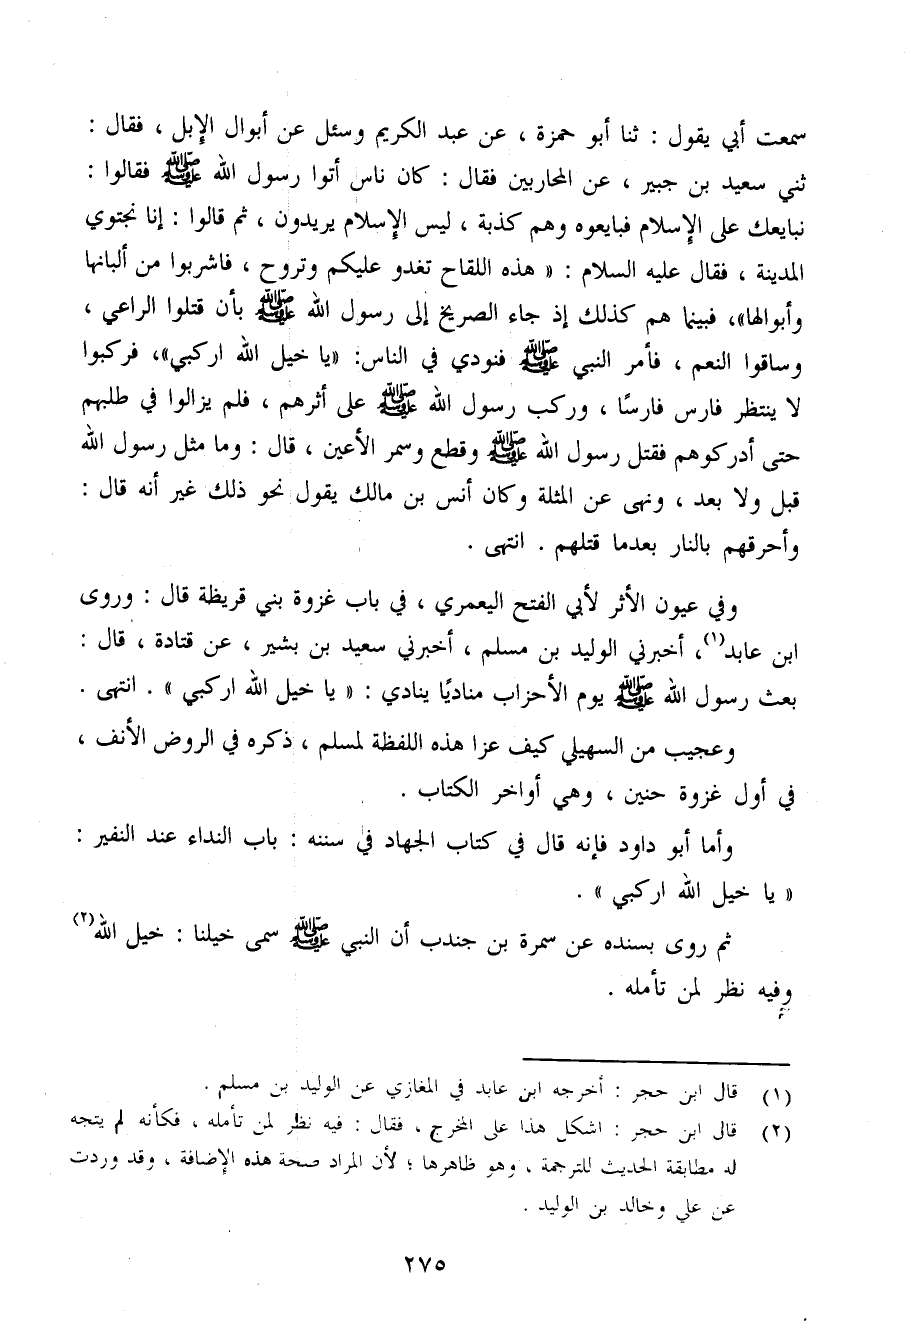 سمعت أبي يقول : ثنا أبو حمزة ، عن عبد الكريم وسئل عن أبوال الإبل ، فقال :
ثني سعيد بن جبير ، عن المحاربين فقال : كان ناس أتوا رسول الله ﷺ فقالوا :
نبايعك على الإسلام فبايعوه وهم كذبة ، ليس الإسلام يريدون ، ثم قالوا : إنا نجتوي
المدينة ، فقال عليه السلام : « هذه اللقاح تغدو عليكم وتروح ، فاشربوا من ألبانها
وأبوالها»، فبينما هم كذلك إذ جاء الصريخ إلى رسول الله ﷺ بأن قتلوا الراعي ،
وساقوا النعم ، فأمر النبي ﷺ فنودي في الناس: «يا خيل الله اركبي»، فركبوا
لا ينتظر فارس فارسًا ، وركب رسول الله ﷺ على أثرهم ، فلم يزالوا في طلبهم
حتى أدركوهم فقتل رسول الله ﷺ وقطع وسمر الأعين ، قال : وما مثل رسول الله
قبل ولا بعد ، ونهى عن المثلة وكان أنس بن مالك يقول نحو ذلك غير أنه قال :
وأحرقهم بالنار بعدما قتلهم . انتهى .
وفي عيون الأثر لأبي الفتح اليعمري ، في باب غزوة بني قريظة قال : وروى
ابن عابد(١)، أخبرني الوليد بن مسلم ، أخبرني سعيد بن بشير ، عن قتادة ، قال :
بعث رسول الله ﷺ يوم الأحزاب مناديًا ينادي : « يا خيل الله اركبي » . انتهى .
وعجيب من السهيلي كيف عزا هذه اللفظة لمسلم ، ذكره في الروض الأنف ،
في أول غزوة حنين ، وهي أواخر الكتاب .
وأما أبو داود فإنه قال في كتاب الجهاد في سننه : باب النداء عند النفير :
« يا خيل الله اركبي » .
ثم روى بسنده عن سمرة بن جندب أن النبي ﷺ سمى خيلنا : خيل الله(٢)
وفيه نظر لمن تأمله .
(١) قال ابن حجر : أخرجه ابن عابد في المغازي عن الوليد بن مسلم .
(٢) قال ابن حجر : اشكل هذا على المخرج ، فقال : فيه نظر لمن تأمله ، فكأنه لم يتجه
له مطابقة الحديث للترجمة ، وهو ظاهرها ؛ لأن المراد صحة هذه الإضافة ، وقد وردت
عن علي وخالد بن الوليد .
٢٧٥